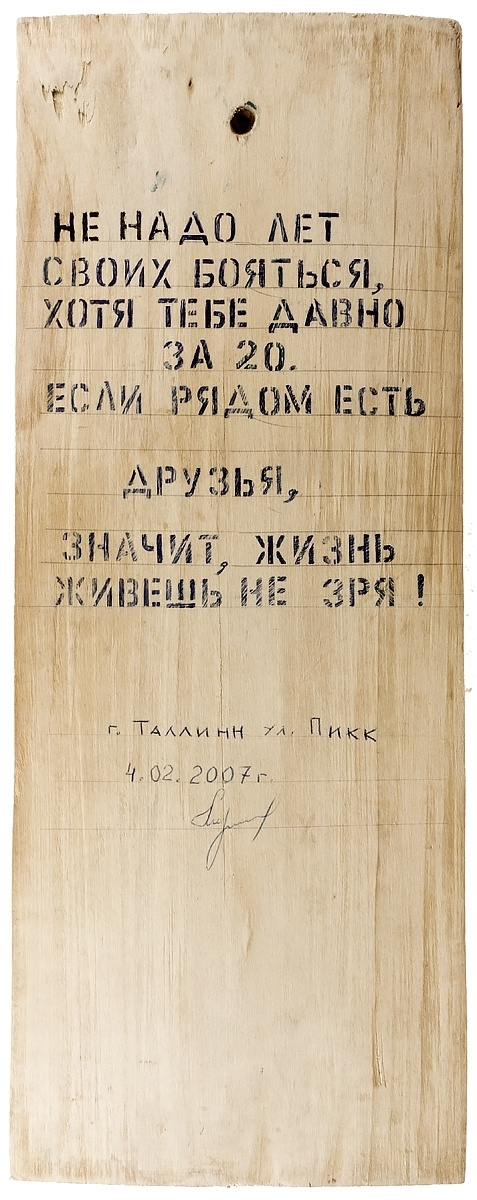 НЕ НАДО ЛЕТ
СВОИХ БОЯТЬСЯ,
ХОТЯ ТЕБЕ ДАВНО
ЗА 20.
ЕСЛИ РЯДОМ ЕСТЬ
ДРУЗЬЯ,
ЗНАЧИТ, ЖИЗНЬ
ЖИВЕШЬ НЕ ЗРЯ !
г. Таллинн ул. Пикк
4.02.2007г.